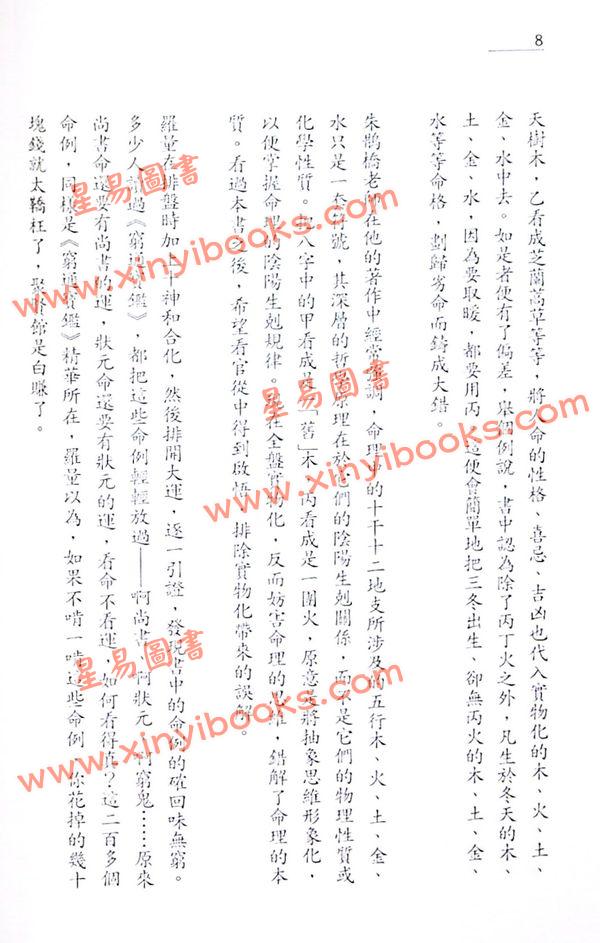 8
天樹木，乙看成芝蘭蒿草等等，將人命的性格、喜忌、吉凶也代入實物化的木、火、土、
金、水中去。如是者便有了偏差，舉個例說，書中認為除了丙丁火之外，凡生於冬天的木、
土、金、水，因為要取暖，都要用丙，這便會簡單地把三冬出生、卻無丙火的木、土、金、
水等等命格，劃歸劣命而鑄成大錯。
朱鵲橋老師在他的著作中經常強調，命理中的十干十二地支所涉及的五行木、火、土、金、
水只是一套符號，其深層的哲學原理在於它們的陰陽生剋關係，而不是它們的物理性質或
化學性質。把八字中的甲看成是「舊」木，丙看成是一團火，原意是將抽象思維形象化，
以便掌握命理的陰陽生剋規律。現在全盤實物化，反而妨害命理的，錯解了命理的本
質。看過本書之後，希望看官從中得到啟悟，排除實物化帶來的誤解。
羅量在排盤時加上十神和合化，然後排開大運，逐一引證，發現書中的命例的確回味無窮。
多少人讀過《窮通寶鑑》，都把這些命例輕輕放過——啊尚書，啊狀元，啊窮鬼……原來
尚書命還要有尚書的運，狀元命還要有狀元的運，看命不看運，如何看得真？這二百多個
命例，同樣是《窮通寶鑑》精華所在，羅量以為，如果不啃一啃這些命例，你花掉的幾十
塊錢就太冤枉了，聚賢館是白賺了。
星易圖書
www.xinyibooks.com
星易圖書
www.xinyibooks.com
星易圖書
www.xinyibooks.com